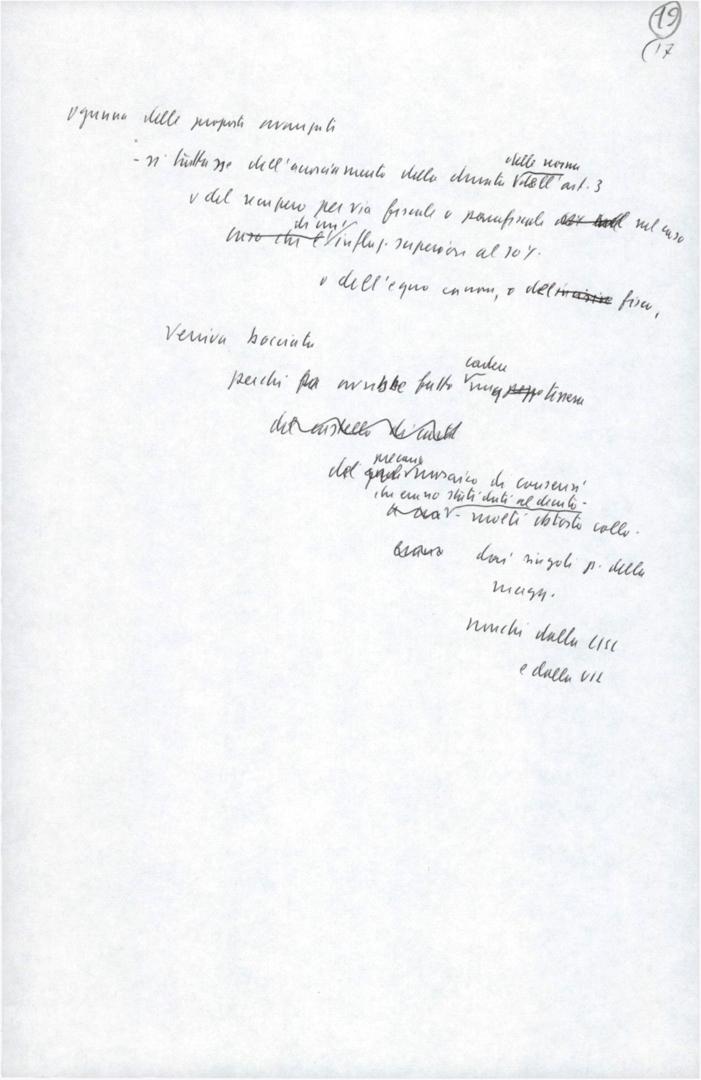 19
17
ognuna delle proposte avanzate
- si trattasse dell'accorciamento della durata della norma dell'art. 3
o del recupero per via fiscale o parafiscale nel caso
caso che l' di un' inflaz. superiore al 10%.
o dell'equo canone, o del fisco,
veniva bocciata
perché avrebbe fatto cadere una tessera
del castello di
del precario mosaico di consensi
che erano stati dati al decreto -
- molti obtorto collo -
dai singoli p. della
magg.
nonché dalla CISL
e dalla UIL